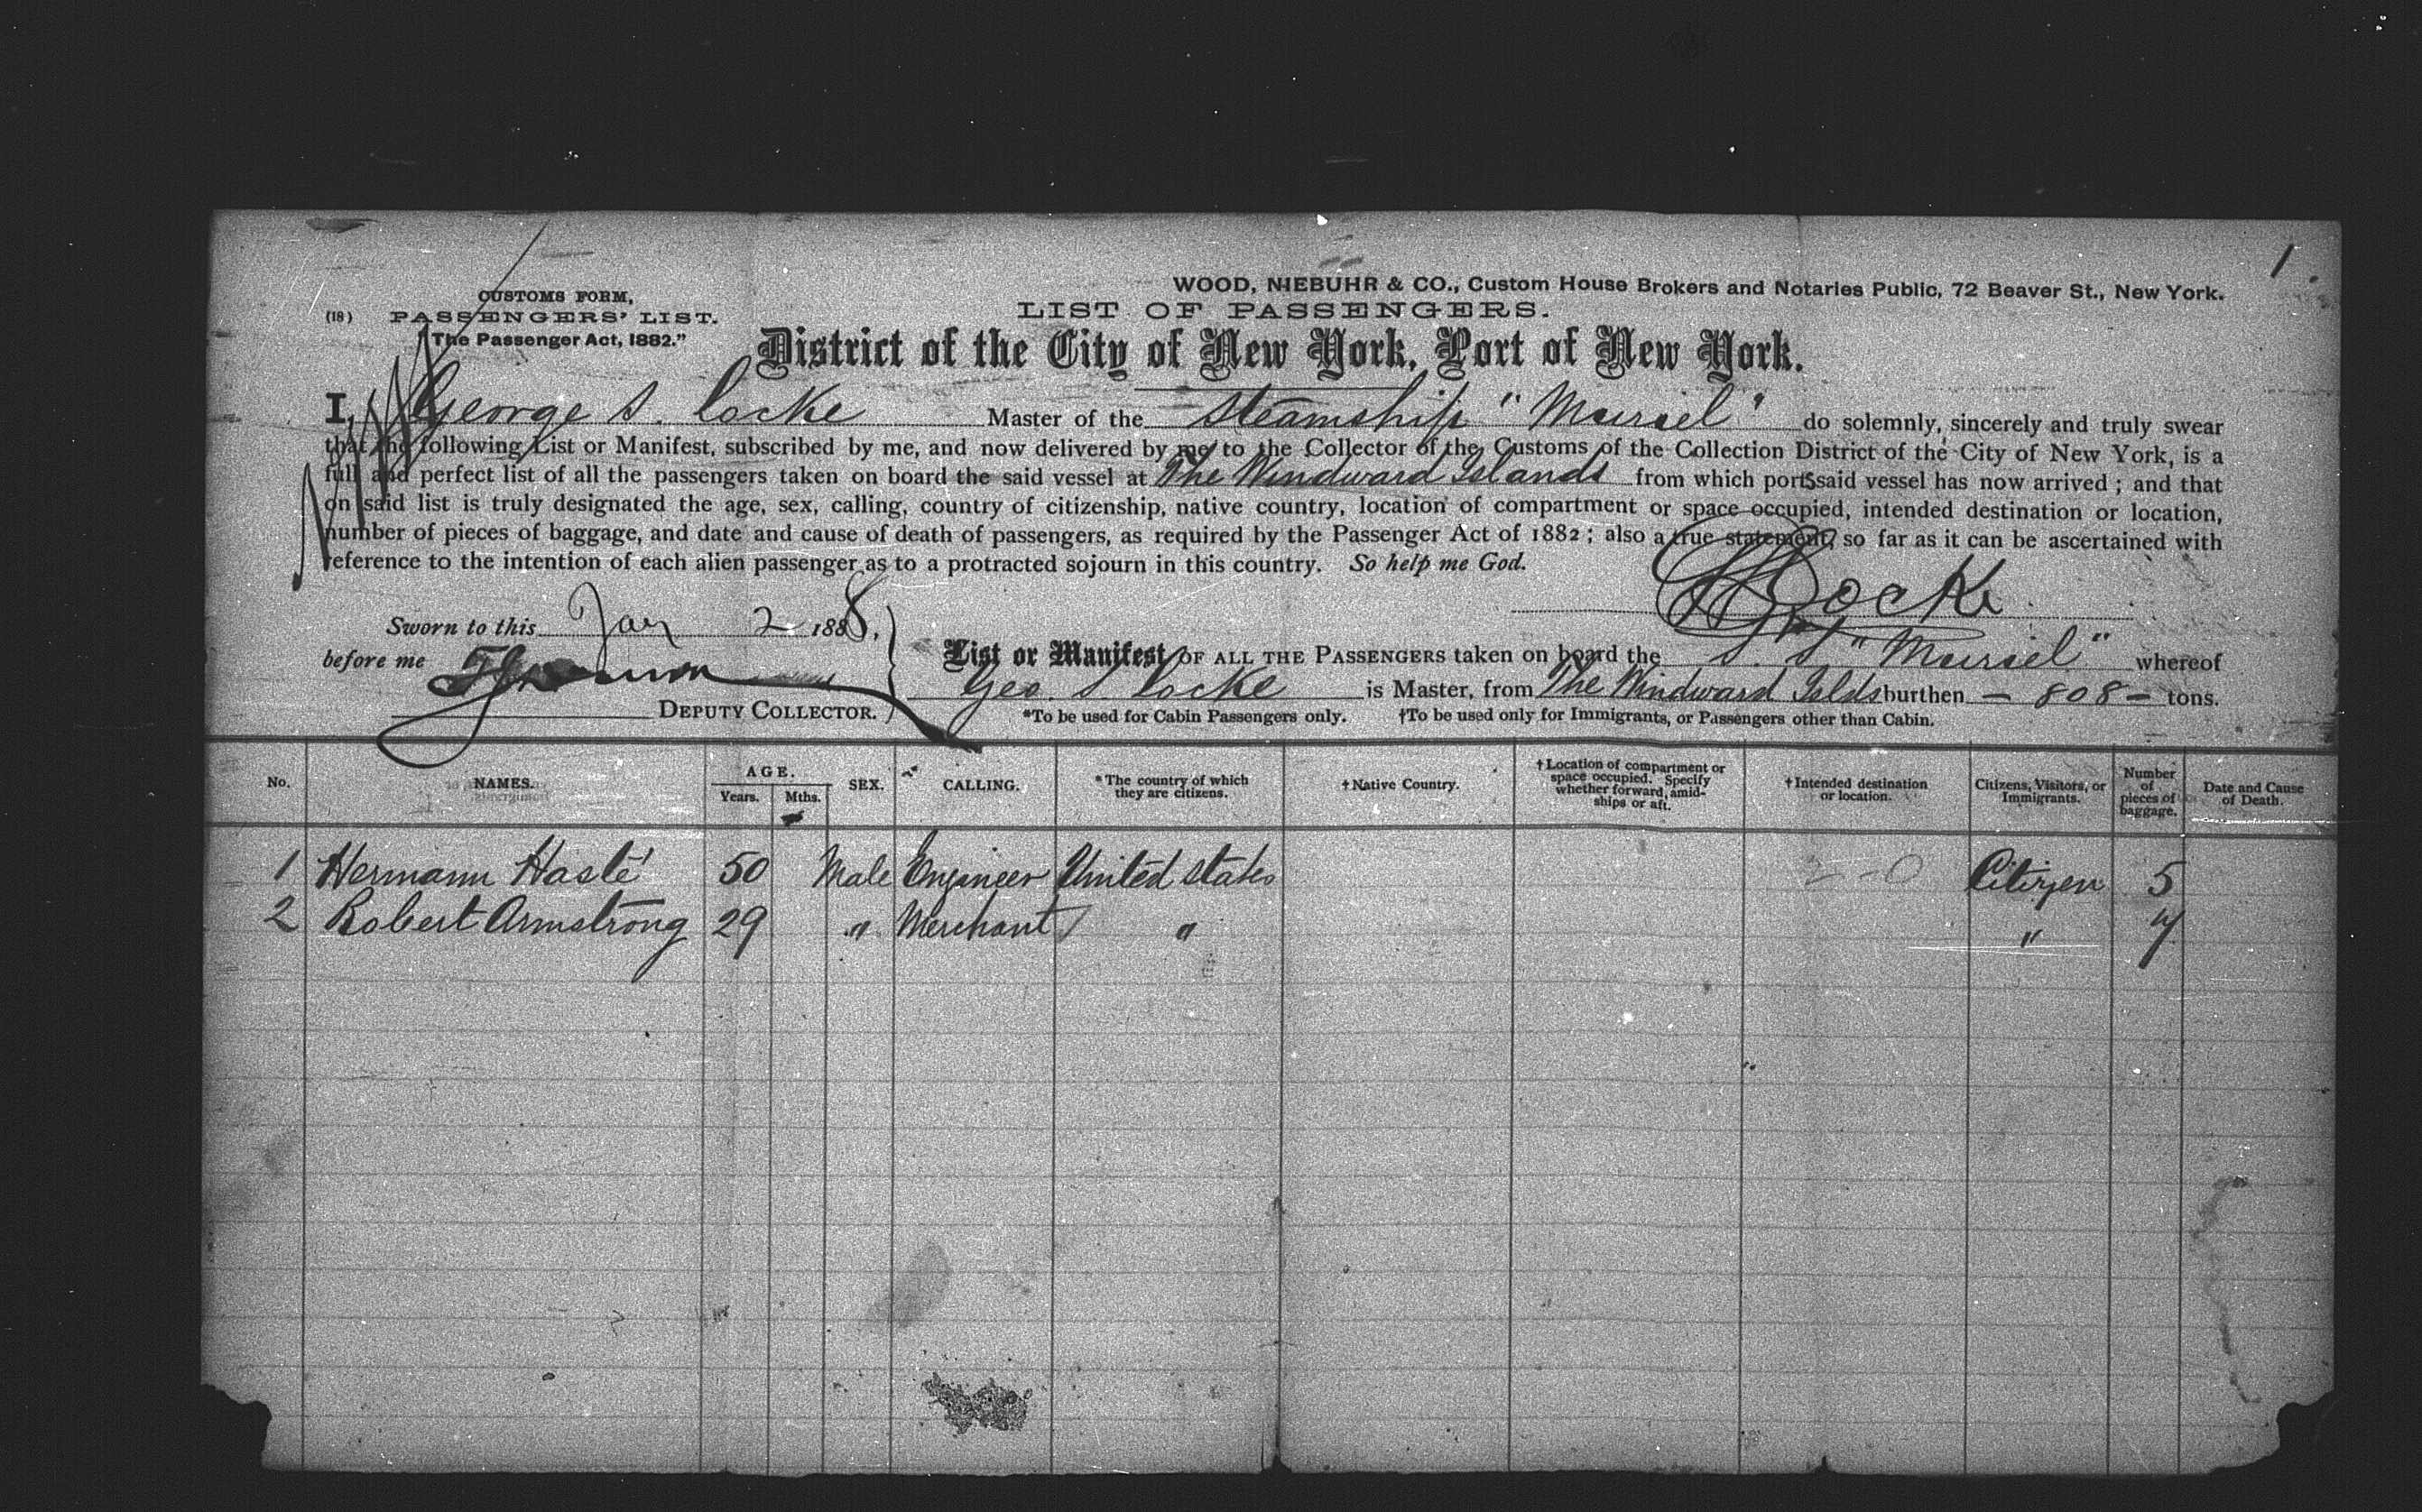 1
WOOD, NIEBUHR & CO., Custom House Brokers and Notaries Public, 72 Beaver St., New York.
CUSTOMS FORM,
(18) PASSENGERS' LIST.
"The Passenger Act, 1882."
LIST OF PASSENGERS.
District of the City of New York, Port of New York.
I, George S. Locke Master of the Steamship "Muriel" do solemnly, sincerely and truly swear
that the following List or Manifest, subscribed by me, and now delivered by me to the Collector of the Customs of the Collection District of the City of New York, is a
full and perfect list of all the passengers taken on board the said vessel at The Windward Islands from which ports said vessel has now arrived; and that
on said list is truly designated the age, sex, calling, country of citizenship, native country, location of compartment or space occupied, intended destination or location,
number of pieces of baggage, and date and cause of death of passengers, as required by the Passenger Act of 1882; also a true statement, so far as it can be ascertained with
reference to the intention of each alien passenger as to a protracted sojourn in this country. So help me God.
Locke
Sworn to this Jan 2 1888,
before me
DEPUTY COLLECTOR.
List or Manifest OF ALL THE PASSENGERS taken on board the S. S. "Muriel" whereof
Geo. S. Locke is Master, from The Windward Islds burthen - 808 - tons.
*To be used for Cabin Passengers only. †To be used only for Immigrants, or Passengers other than Cabin.
No. NAMES. AGE. Years. Mths. SEX. CALLING. *The country of which they are citizens. †Native Country. †Location of compartment or space occupied. Specify whether forward, amidships or aft. †Intended destination or location. Citizens, Visitors, or Immigrants. Number of pieces of baggage. Date and Cause of Death.
1 Hermann Hasté 50 Male Engineer United States Citizen 5
2 Robert Armstrong 29 " Merchant " " 7